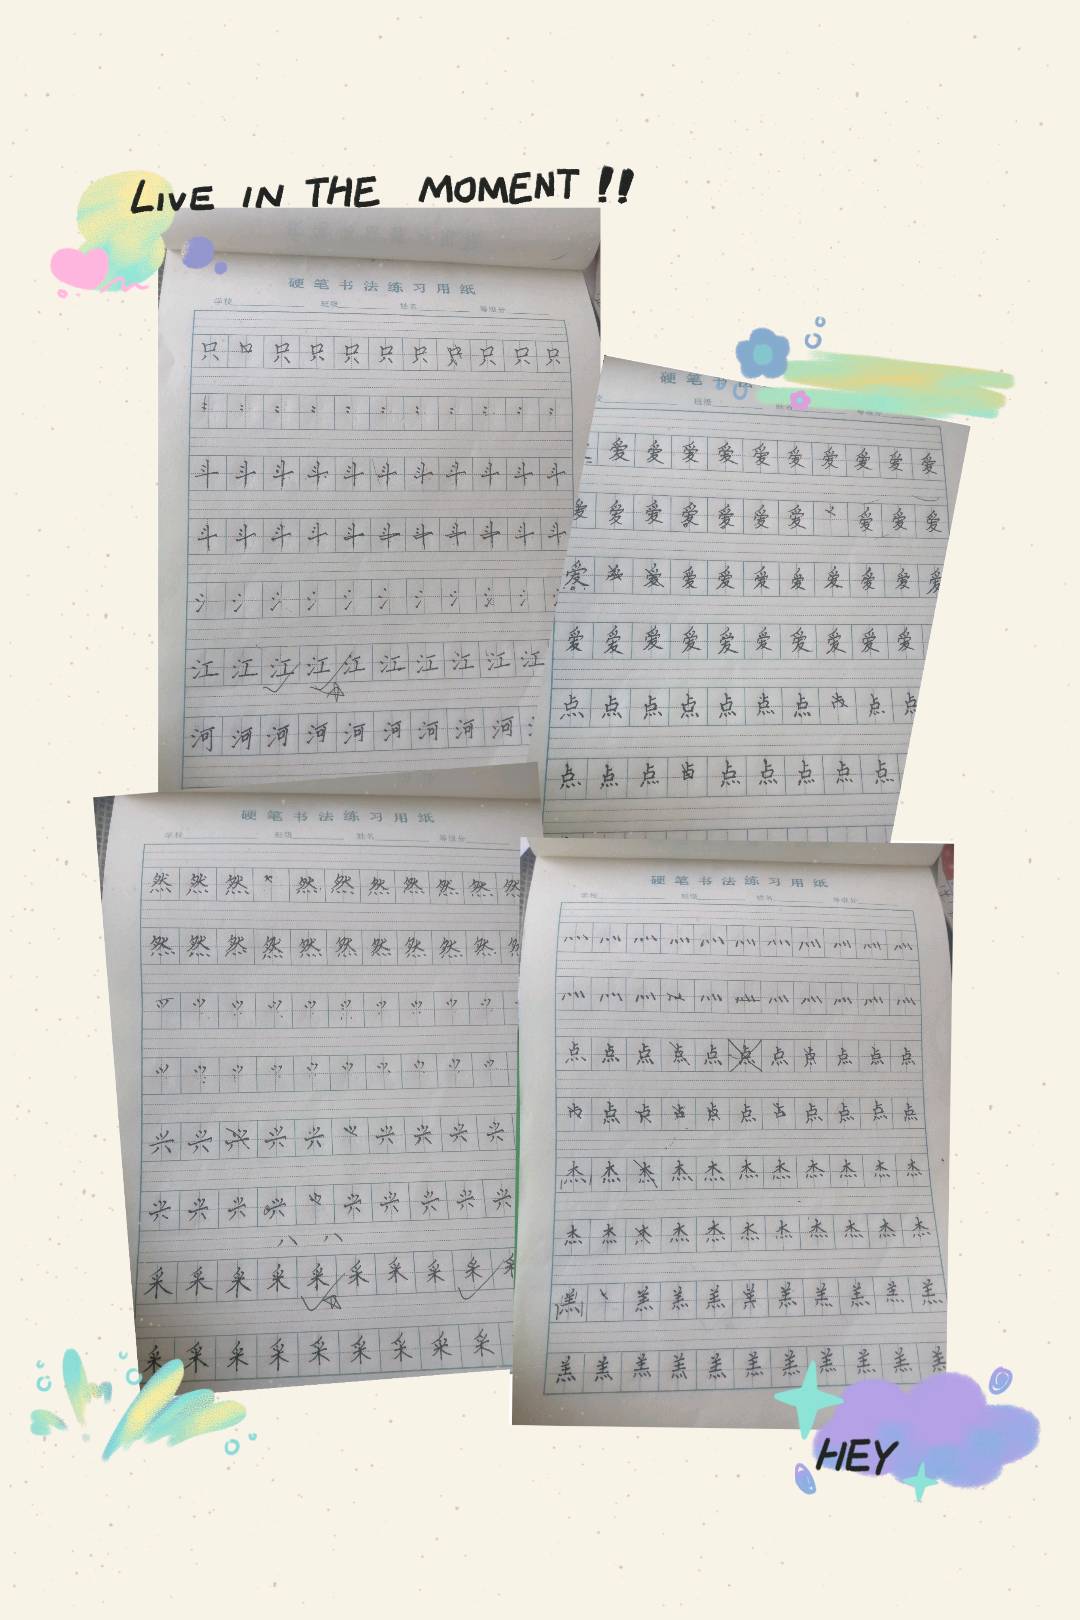 LIVE IN THE MOMENT !!
硬笔书法练习用纸
学校 班级 姓名 等级分
只 只 只 只 只 只 只 只 只 只
斗 斗 斗 斗 斗 斗 斗 斗 斗 斗 斗
斗 斗 斗 斗 斗 斗 斗 斗 斗 斗 斗
氵 氵 氵 氵 氵 氵 氵 氵 氵 氵
江 江 江 江 江 江 江 江 江 江
河 河 河 河 河 河 河 河 河
硬笔书法
班级 姓名
爱 爱 爱 爱 爱 爱 爱 爱 爱 爱
爱 爱 爱 爱 爱 爱 爱 爱 爱 爱
爱 爱 爱 爱 爱 爱 爱 爱 爱 爱
爱 爱 爱 爱 爱 爱 爱 爱 爱 爱
点 点 点 点 点 点 点 点 点
点 点 点 点 点 点 点 点
硬笔书法练习用纸
学校 班级 姓名 等级分
然 然 然 然 然 然 然 然 然 然
然 然 然 然 然 然 然 然 然 然 然
兴 兴 兴 兴 兴 兴 兴 兴 兴
兴 兴 兴 兴 兴 兴 兴 兴 兴
采 采 采 采 采 采 采 采 采 采 采
采 采 采 采 采 采 采 采 采 采
硬笔书法练习用纸
学校 班级 姓名 等级分
灬 灬 灬 灬 灬 灬 灬 灬 灬 灬 灬
灬 灬 灬 灬 灬 灬 灬 灬 灬
点 点 点 点 点 点 点 点 点 点
点 点 点 点 点 点 点
杰 杰 杰 杰 杰 杰 杰 杰 杰 杰 杰
杰 杰 杰 杰 杰 杰 杰 杰 杰 杰
羔 羔 羔 羔 羔 羔 羔 羔 羔
羔 羔 羔 羔 羔 羔 羔 羔 羔 羔 羔
HEY